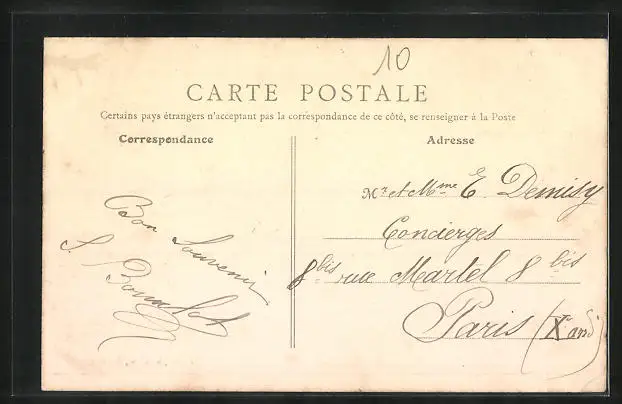 10
CARTE POSTALE
Certains pays étrangers n'acceptant pas la correspondance de ce côté, se renseigner à la Poste
Correspondance
Adresse
Bon Souvenir
Mr et Mme E. Demisy
Concierges
8 bis rue Martel 8 bis
Paris (Xe arrd)